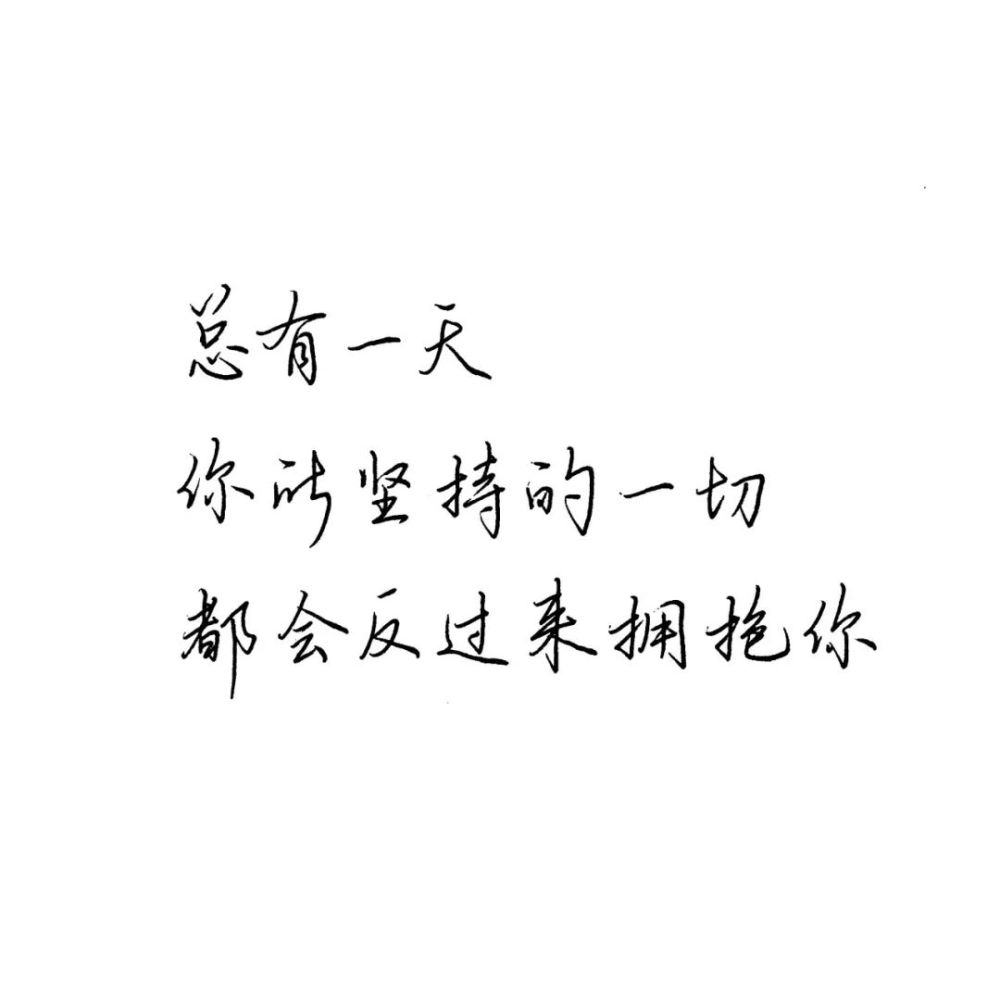 总有一天
你所坚持的一切
都会反过来拥抱你